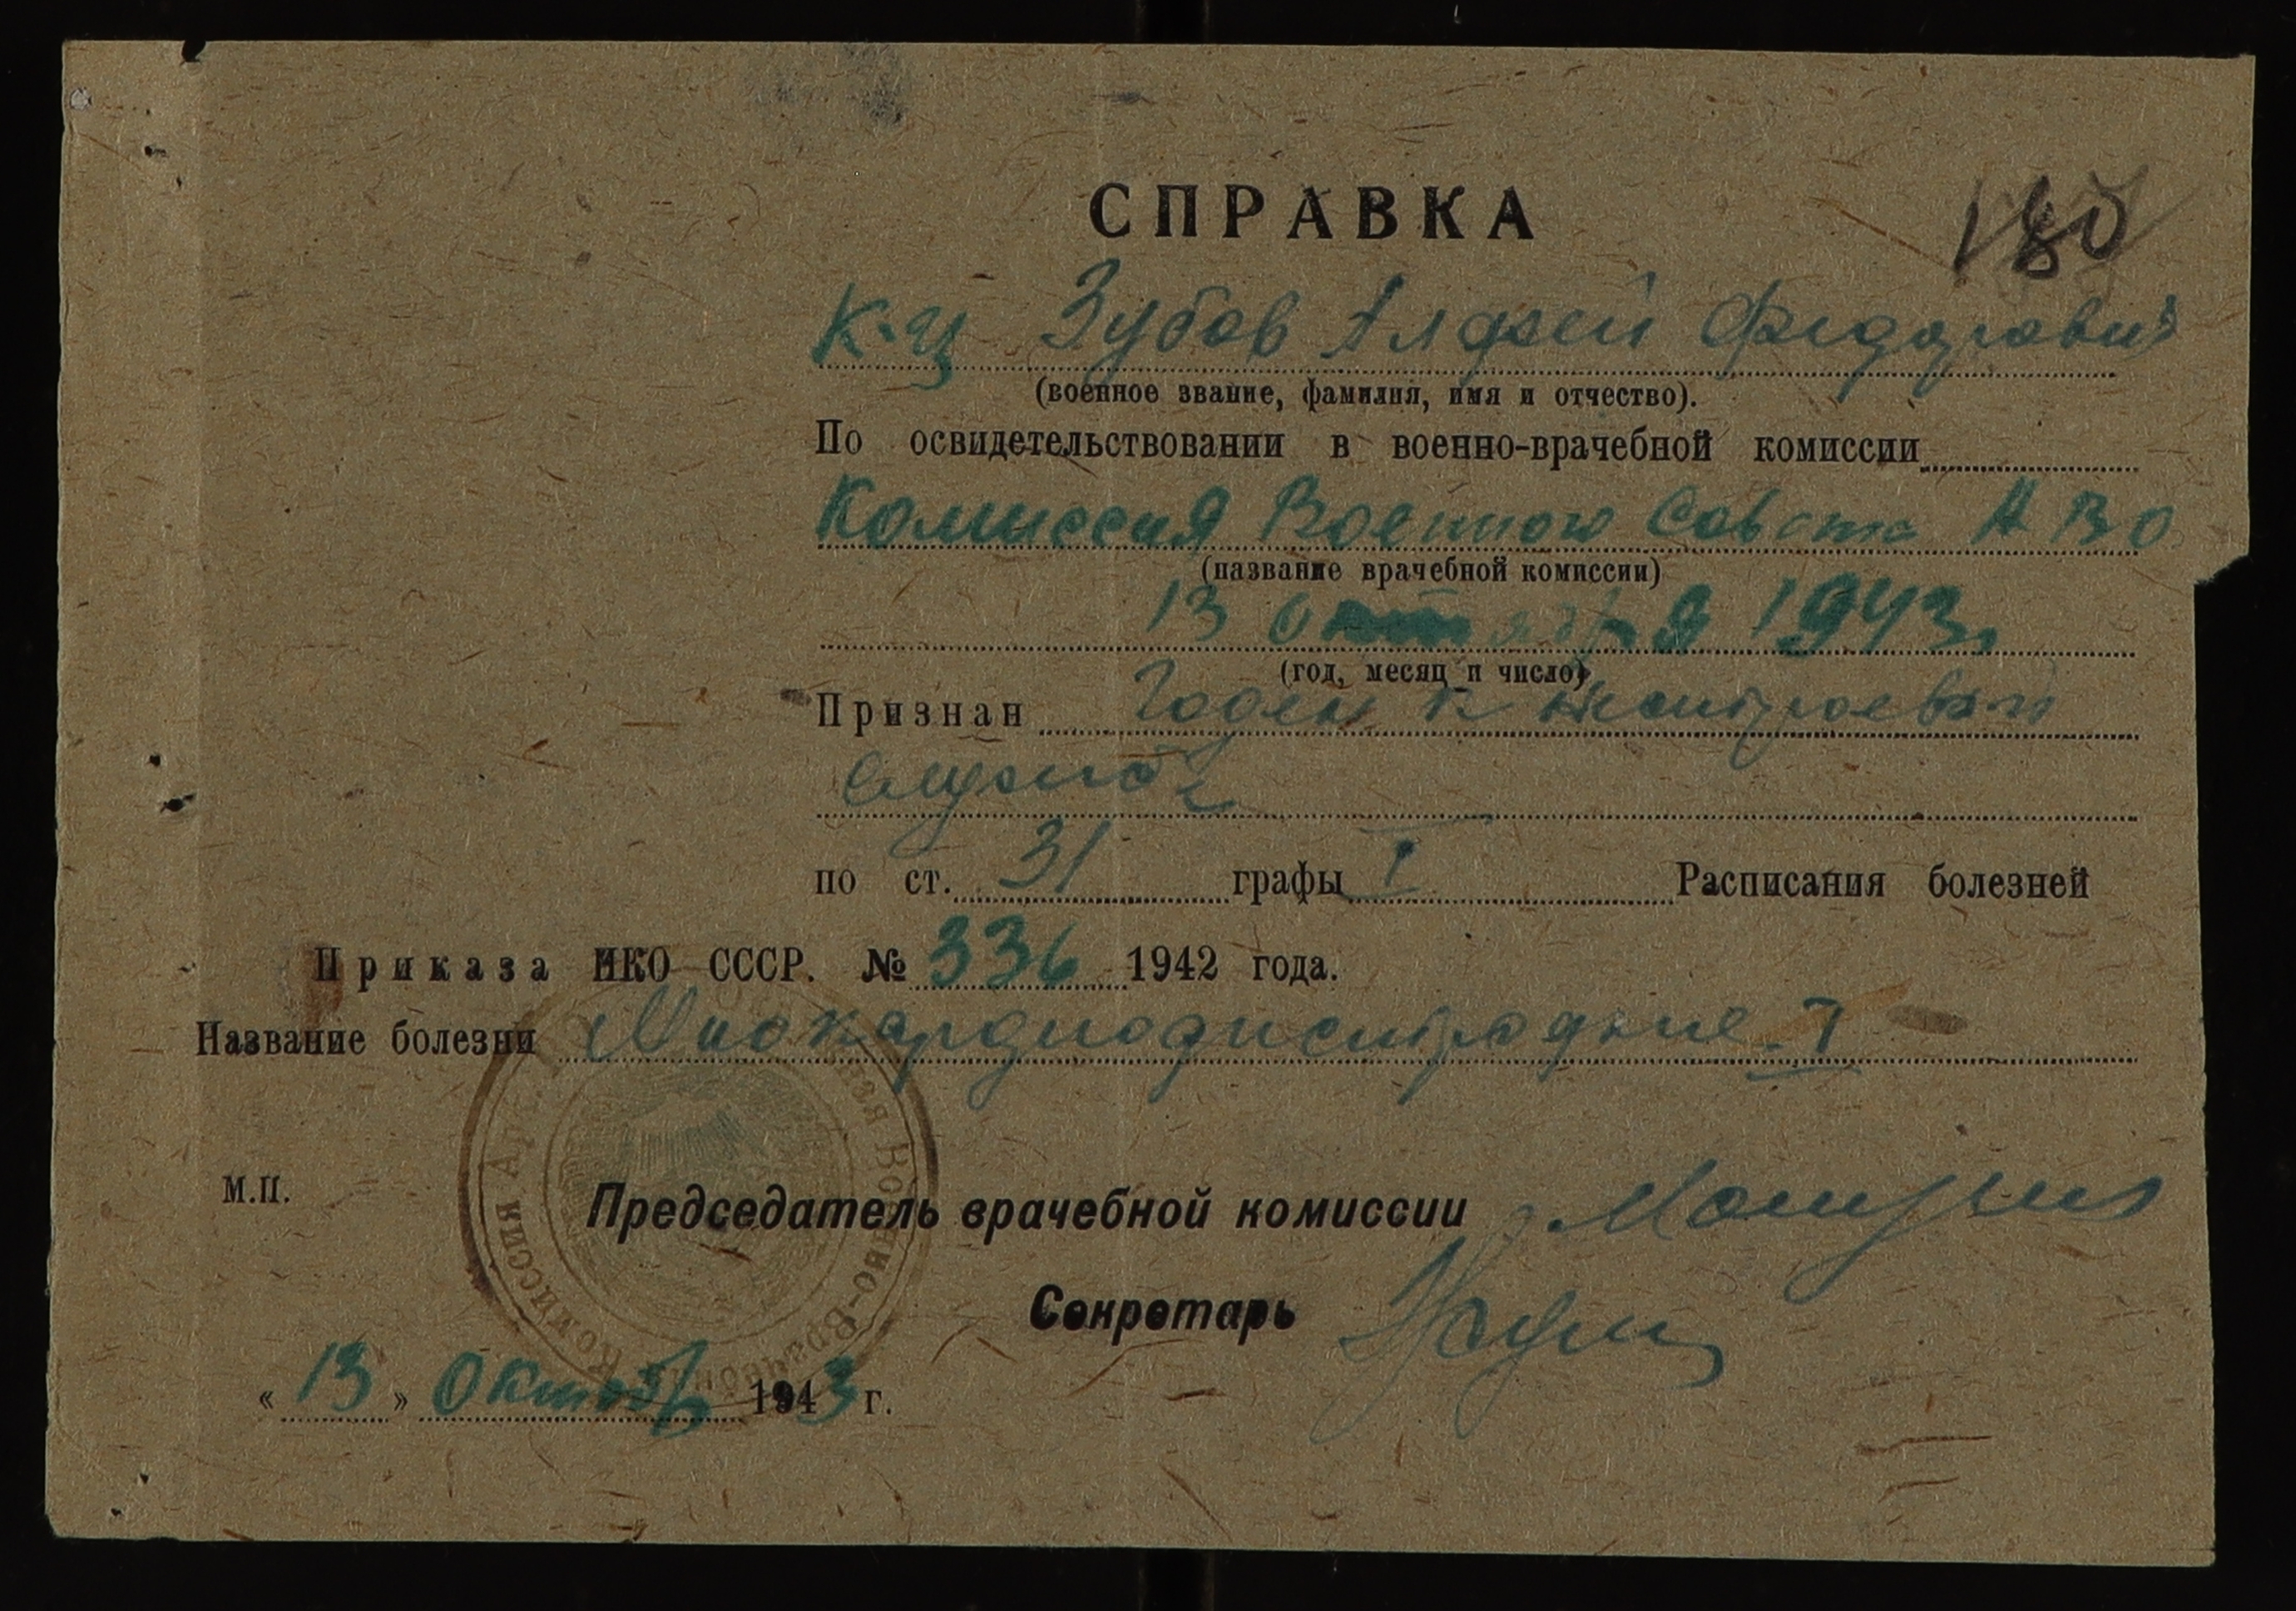 СПРАВКА
180
К-ц Зубов Алфей Федорович
(военное звание, фамилия, имя и отчество).
По освидетельствовании в военно-врачебной комиссии
Комиссия Военного Совета АВО
(название врачебной комиссии)
13 октября 1943г
(год, месяц и число)
Признан Годен к нестроевой
службе
по ст. 31 графы I Расписания болезней
Приказа НКО СССР. № 336 1942 года.
Название болезни Миокардиодистрофие I
М.П.
Председатель врачебной комиссии
Секретарь
«13» Октябр 1943 г.
Военно-Врачебная Комиссия